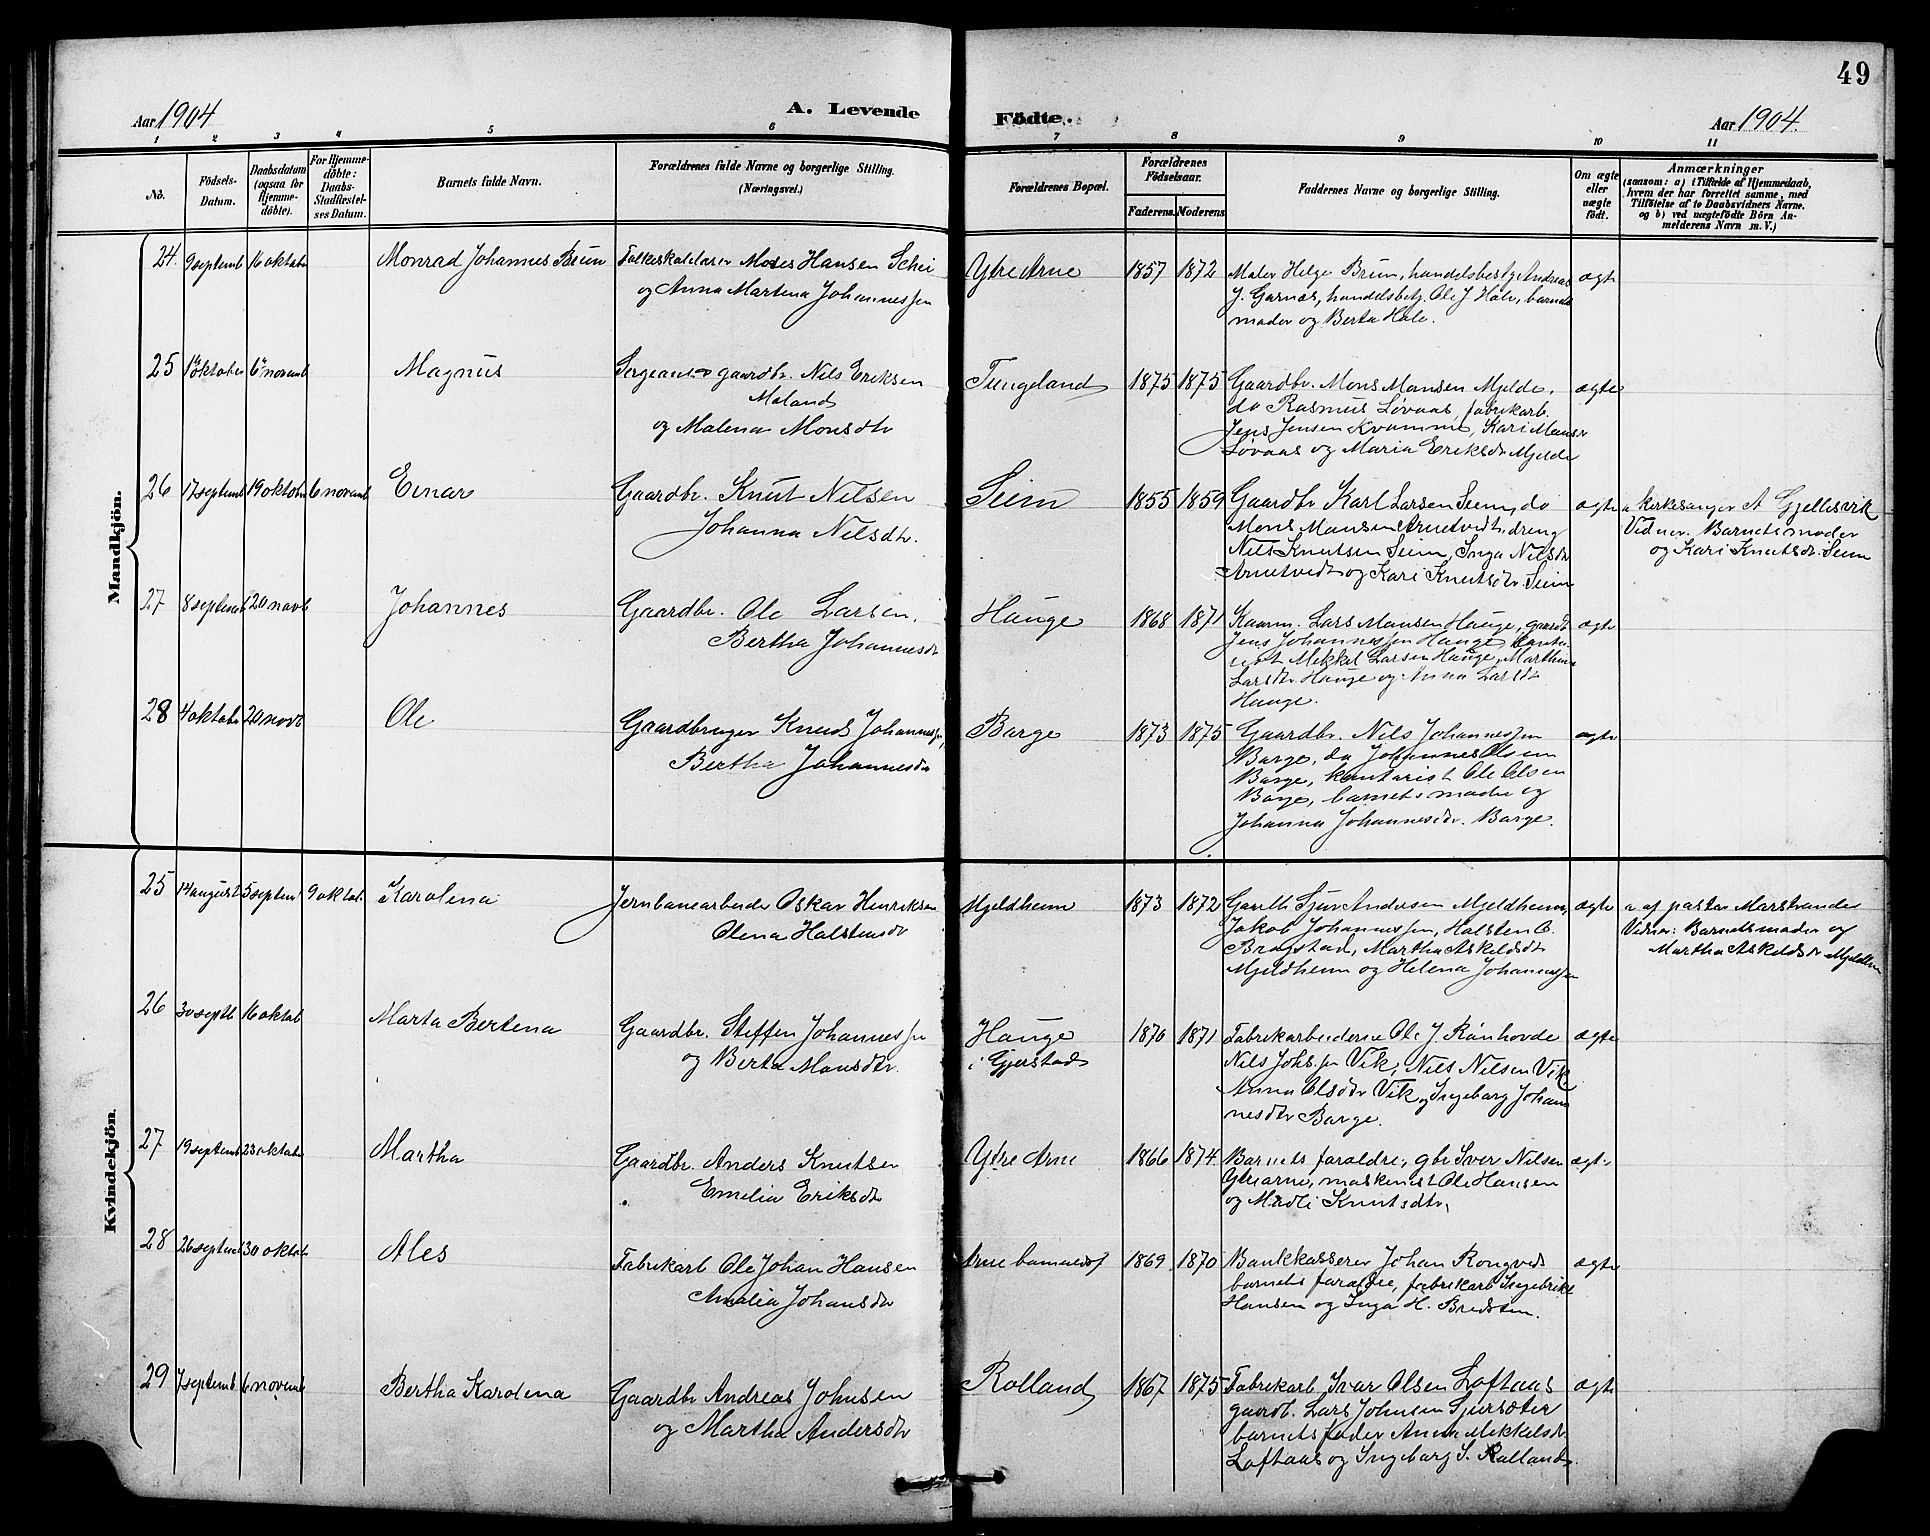 49
Aar 1904
A. Levende
Födte.
Aar 1904.
1 2 3 4 5 6 7 8 9 10 11
No.
Födsels-
Datum.
Daabsdatum
(ogsaa for
Hjemme-
döbte).
For Hjemme-
döbte:
Daabs-
Stadfæstel-
ses Datum.
Barnets fulde Navn.
Forældrenes fulde Navne og borgerlige Stilling.
(Næringsvei.)
Forældrenes Bopæl.
Forældrenes
Födselsaar.
Faderens. Moderens
Faddernes Navne og borgerlige Stilling.
Om ægte
eller
uægte
födt.
Anmærkninger
(saasom: a) i Tilfælde af Hjemmedaab,
hvem der har forrettet samme, med
Tilföielse af to Daabsvidners Navne.
og b) ved uægtefödte Börn An-
melderens Navn m. V.)
Mandkjön.
24. 9 septemb 16 oktobr Monrad Johannes Brun
Folkeskolelærer Moses Hansen Schei
og Anna Martena Johannessen
Ytre Arne 1857 1872
Maler Helge Brun, handelsbestj. Andreas
J. Garnæs, handelsbetj. Ole J. Hole, barnets
moder og Berta Hole.
ægte
25 1 oktober 6 novemb Magnus
Sergeant o gaardbr. Nils Eriksen
Moland
og Malena Monsdtr
Tungeland 1875 1875
Gaardbr. Mons Monsen Mjelde,
do Rasmus Løvaas, fabrikarb.
Jens Jensen Kvamme, Kari Monsdr
Løvaas og Maria Eriksdr Mjelde
ægte
26 17 septemb 19 oktobr 6 novemb Einar
Gaardbr. Knut Nilsen
Johanna Nilsdtr.
Seim 1855 1859
Gaardbr Karl Larsen Seim, do
Mons Monsen Arnetvedt, dreng
Nils Knutsen Seim, Inga Nilsdr
Arnetvedt og Kari Knutsdtr. Seim
ægte
a kirkesanger A Gjellesvik
Vidner. Barnets moder
og Kari Knutsdr. Seim
27 8 septemb 20 novb Johannes
Gaardbr. Ole Larsen,
Bertha Johannesdr
Hauge 1868 1871
Kaarm. Lars Monsen Hauge, gaardb
Jens Johannessen Hauge,
Mikkel Larsen Hauge, Marthina
Larsdtr Hauge og Anna Larsdtr
Hauge.
ægte
28 4 oktobr 20 novb Ole
Gaardbruger Knud Johannessen,
Bertha Johannesdr
Borge 1873 1875
Gaardbr. Nils Johannessen
Borge, do Johannes Olsen
Borge, kontorist Ole Olsen
Borge, barnets moder og
Johanna Johannesdr. Borge.
ægte
Kvindekjön.
25 14 august 5 septemb 9 oktob. Karolena
Jernbanearbeider Oskar Henriksen
Olena Halstensdr
Mjeldheim 1873 1872
Garelli Sjur Andersen Mjeldheim,
Jakob Johannessen, Halsten O.
Brogstad, Martha Askeldsdtr
Mjeldheim og Helena Johannessen
ægte
a af pastor Marstrander
Vidner: Barnets moder og
Martha Askeldsdr Mjeldheim
26 30 septb 16 oktob Marta Bertena
Gaardbr. Steffen Johannessen
og Berta Monsdtr.
Hauge
i Gjerstad
1870 1871
Fabrikarbeiderne Ole J. Rønhovde
Nils Johs.sen Vik, Nils Nilsen Vik,
Anna Olsdtr Vik og Ingeborg Johan
nesdtr Borge.
ægte
27 19 septemb 23 oktobr Martha
Gaardbr. Anders Knutsen
Emelia Eriksdtr
Ytre Arne 1866 1874
Barnets foraldre, gbr Iver Nilsen
Ytrearne, maskenist Ole Hansen
og Madli Knutsdtr,
ægte
28 26 septemb 30 oktob. Ales
Fabrikarb Ole Johan Hansen
Amalia Johansdtr
Arne 1869 1870
Bankkasserer Johan Rongved
barnets foraldre, fabrikarb Ingebrikt
Hansen og Inga H. Bredsten.
ægte
29 7 septemb 6 novemb Bertha Karolena
Gaardbr Andreas Johnsen
og Martha Andersdtr
Rolland 1867 1875
Fabrikarb Ivar Olsen Loftaas
gaardb. Lars Johnsen Sjursæter
barnets fader Anna Mikkelsdr
Loftaas og Ingeborg S. Rolland.
ægte